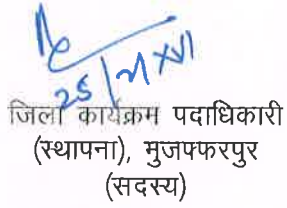 25/11/XVI
जिला कार्यक्रम पदाधिकारी
(स्थापना), मुजफ्फरपुर
(सदस्य)